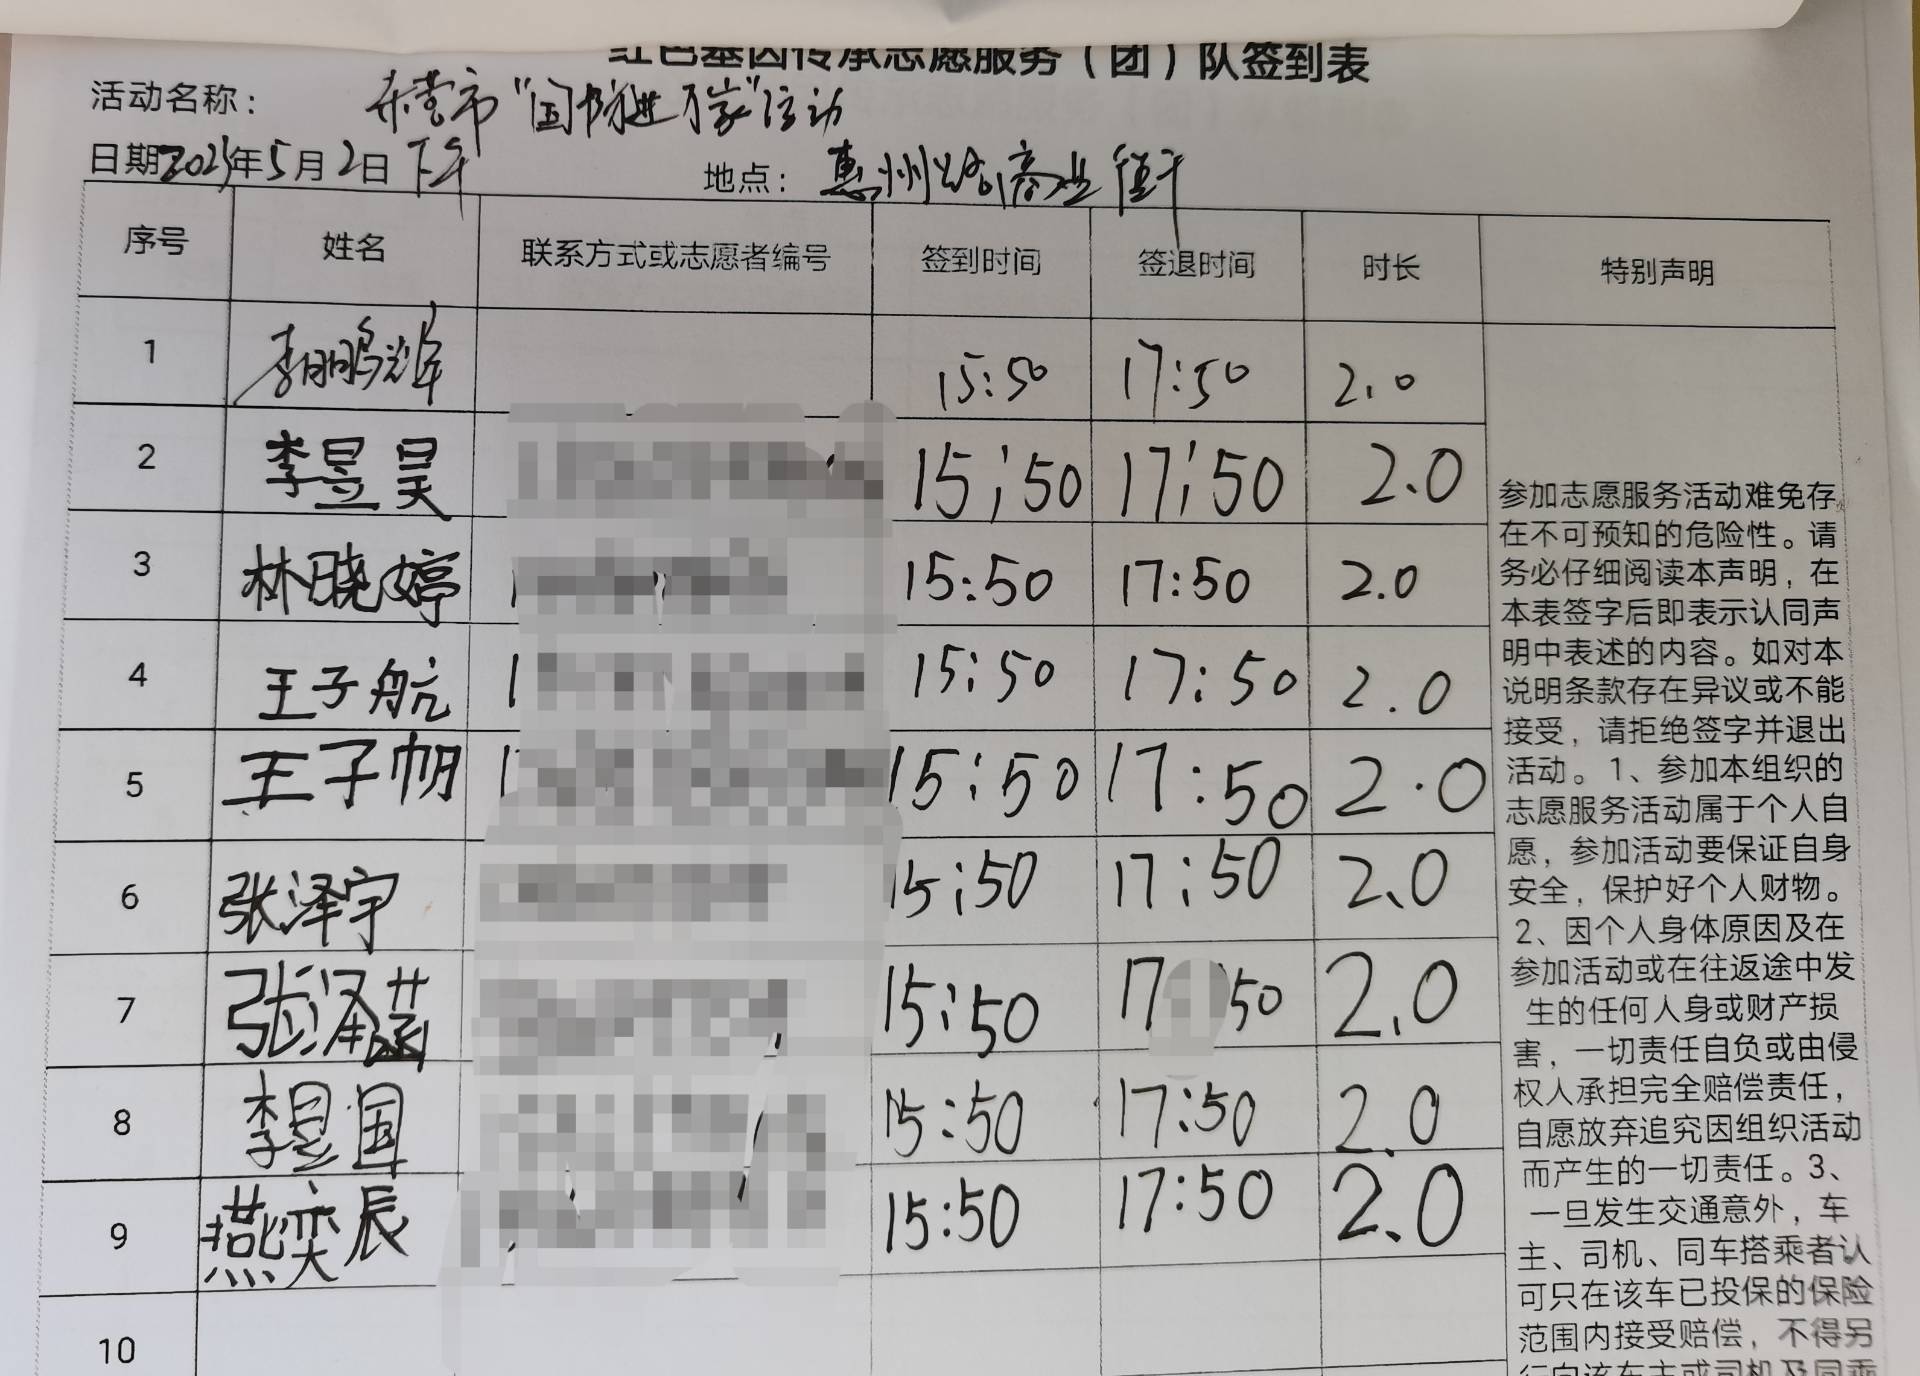 红色基因传承志愿服务（团）队签到表
活动名称： 东营市“国防进万家”活动
日期2023年5月2日 下午 地点： 惠州路商业街
序号 姓名 联系方式或志愿者编号 签到时间 签退时间 时长 特别声明
1 李鹏辉 15:50 17:50 2.0
2 李昱昊 15:50 17:50 2.0
3 林晓婷 15:50 17:50 2.0
4 王子航 15:50 17:50 2.0
5 王子帆 15:50 17:50 2.0
6 张泽宇 15:50 17:50 2.0
7 张泽菡 15:50 17 50 2.0
8 李昱国 15:50 17:50 2.0
9 燕奕辰 15:50 17:50 2.0
10
参加志愿服务活动难免存
在不可预知的危险性。请
务必仔细阅读本声明，在
本表签字后即表示认同声
明中表述的内容。如对本
说明条款存在异议或不能
接受，请拒绝签字并退出
活动。1、参加本组织的
志愿服务活动属于个人自
愿，参加活动要保证自身
安全，保护好个人财物。
2、因个人身体原因及在
参加活动或在往返途中发
生的任何人身或财产损
害，一切责任自负或由侵
权人承担完全赔偿责任，
自愿放弃追究因组织活动
而产生的一切责任。3、
一旦发生交通意外，车
主、司机、同车搭乘者认
可只在该车已投保的保险
范围内接受赔偿，不得另
行向该车主或司机及同乘